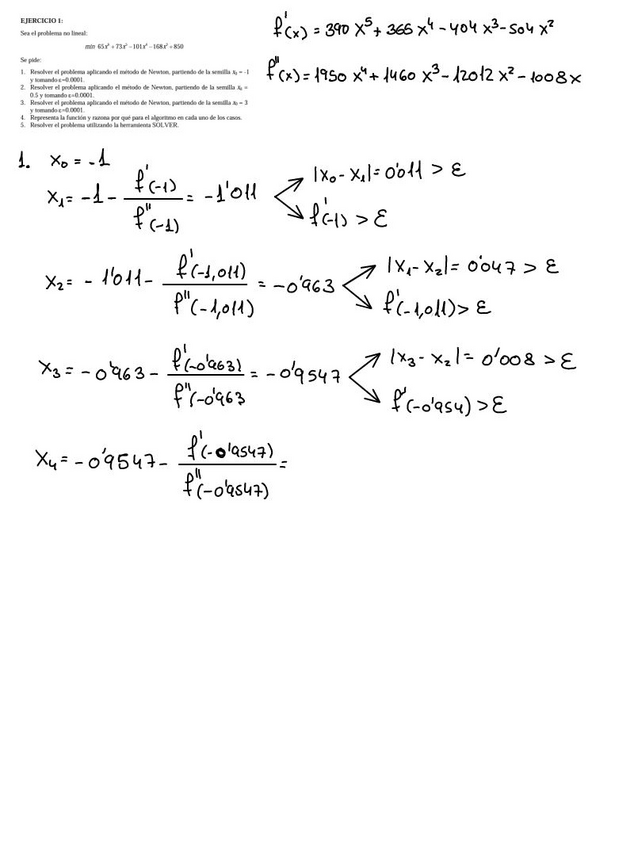 EJERCICIO 1:
Sea el problema no lineal:
min 65x⁶ + 73x⁵ - 101x⁴ - 168x³ + 850
Se pide:
1. Resolver el problema aplicando el método de Newton, partiendo de la semilla x₀ = -1
y tomando ε=0.0001.
2. Resolver el problema aplicando el método de Newton, partiendo de la semilla x₀ =
0.5 y tomando ε=0.0001.
3. Resolver el problema aplicando el método de Newton, partiendo de la semilla x₀ = 3
y tomando ε=0.0001.
4. Representa la función y razona por qué para el algoritmo en cada uno de los casos.
5. Resolver el problema utilizando la herramienta SOLVER.
f'(x) = 390 x⁵ + 365 x⁴ - 404 x³ - 504 x²
f''(x) = 1950 x⁴ + 1460 x³ - 12012 x² - 1008x
1. x₀ = -1
x₁ = -1 - f'(-1) / f''(-1) = -1'011
|x₀ - x₁| = 0'011 > ε
f'(-1) > ε
x₂ = - 1'011 - f'(-1,011) / f''(-1,011) = -0'963
|x₁ - x₂| = 0'047 > ε
f'(-1,011) > ε
x₃ = -0'963 - f'(-0'963) / f''(-0'963 = -0'9547
|x₃ - x₂| = 0'008 > ε
f'(-0'954) > ε
x₄ = -0'9547 - f'(-0'9547) / f''(-0'9547) =